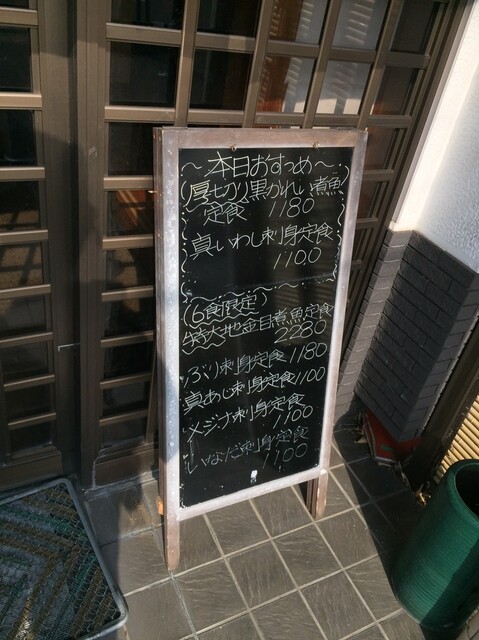 ～本日おすすめ～
厚切り黒かれい煮魚
定食 1180
真いわし刺身定食
1100
(6食限定)
特大地金目煮魚定食
2280
ぶり刺身定食 1180
真あじ刺身定食 1100
メジナ刺身定食
1100
いなだ刺身定食
1100